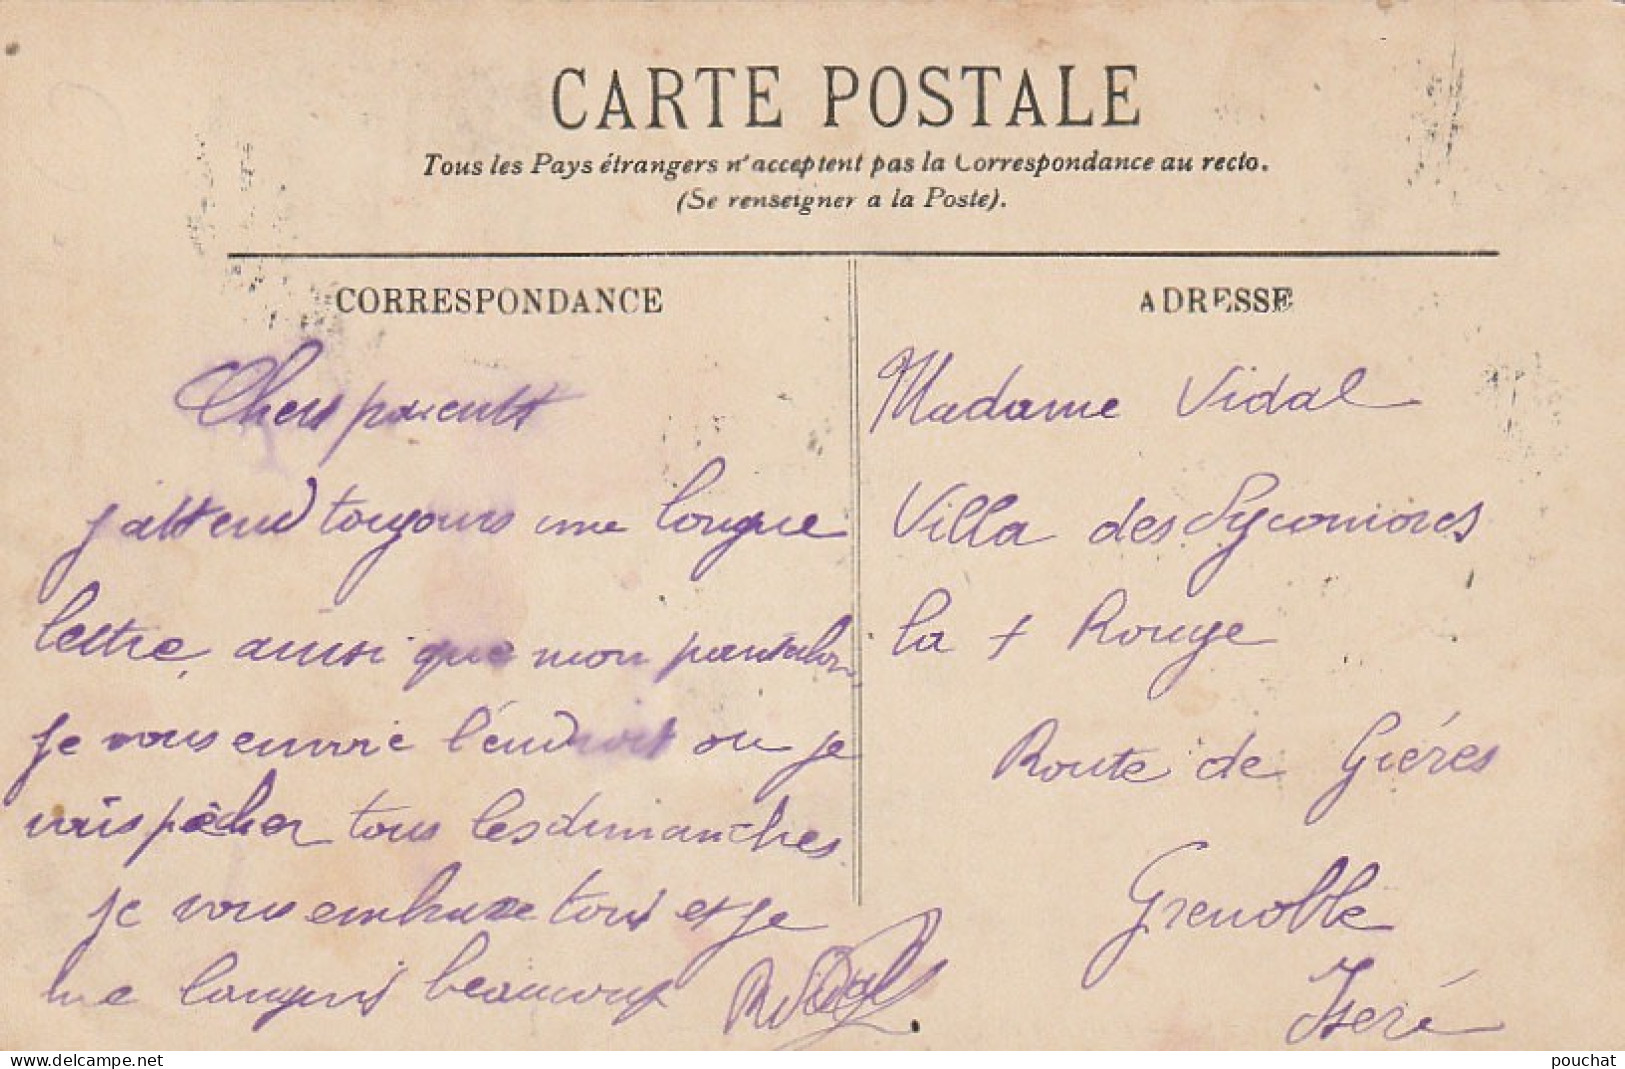 CARTE POSTALE
Tous les Pays étrangers n'acceptent pas la Correspondance au recto.
(Se renseigner a la Poste).
CORRESPONDANCE
Chers parents
j attend toujours une longue
lettre, ainsi que mon pantalon,
je vous envoie l'endroit ou je
vais pêcher tous les dimanches
je vous embrasse tous et je
me languis beaucoup
R Vidal
ADRESSE
Madame Vidal
Villa des Sycomores
la + Rouge
Route de Gières
Grenoble
Isère
www.delcampe.net
pouchat